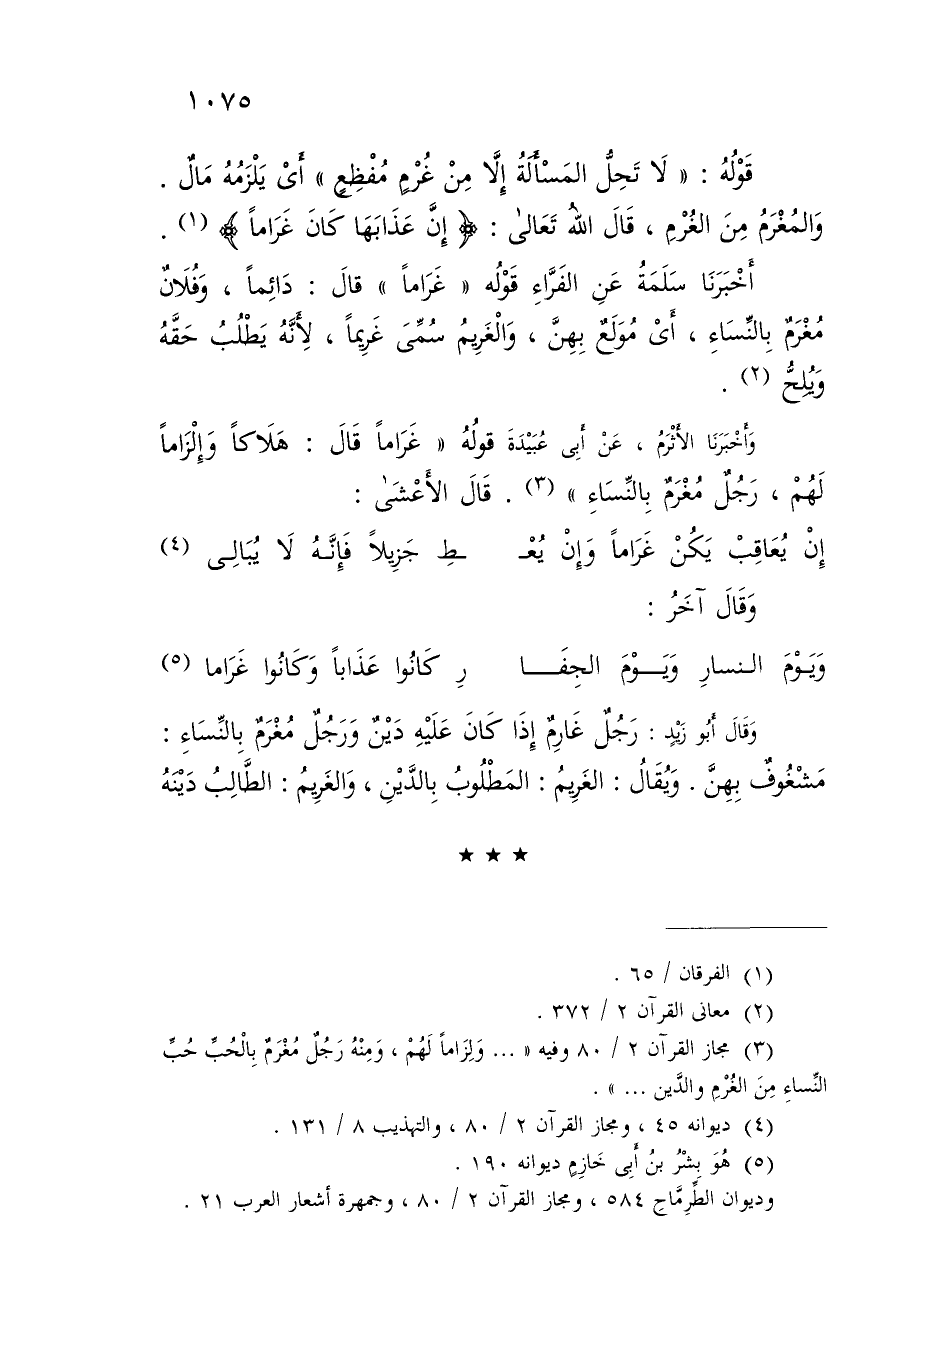 ١٠٧٥
قَوْلُهُ : « لَا تَحِلُّ المَسْأَلَةُ إِلَّا مِنْ غُرْمٍ مُفْظِعٍ » أَىْ يَلْزَمُهُ مَالٌ .
وَالمُغْرَمُ مِنَ الغُرْمِ ، قَالَ اللهُ تَعَالىٰ : ﴿ إِنَّ عَذَابَهَا كَانَ غَرَاماً ﴾ (١) .
أَخْبَرَنَا سَلَمَةُ عَنِ الفَرَّاءِ قَوْلُه « غَرَاماً » قالَ : دَائِماً ، وَفُلَانٌ
مُغْرَمٌ بِالنِّسَاءِ ، أَىْ مُولَعٌ بِهِنَّ ، وَالْغَرِيمُ سُمِّىَ غَرِيماً ، لِأَنَّهُ يَطْلُبُ حَقَّهُ
وَيُلِحُّ (٢) .
وَأَخْبَرَنَا الأَثْرَمُ ، عَنْ أَبِى عُبَيْدَةَ قولُهُ « غَرَاماً قَالَ : هَلَاكاً وَإِلْزَاماً
لَهُمْ ، رَجُلٌ مُغْرَمٌ بِالنِّسَاءِ » (٣) . قَالَ الأَعْشَىٰ :
إِنْ يُعَاقِبْ يَكُنْ غَرَاماً وَإِنْ يُعْـ ـطِ جَزِيلاً فَإِنَّـهُ لَا يُبَالِـى (٤)
وَقَالَ آخَرُ :
وَيَـوْمَ الـنسارِ وَيَــوْمَ الجِفَــا رِ كَانُوا عَذَاباً وَكَانُوا غَرَاما (٥)
وَقَالَ أَبُو زَيْدٍ : رَجُلٌ غَارِمٌ إِذَا كَانَ عَلَيْهِ دَيْنٌ وَرَجُلٌ مُغْرَمٌ بِالنِّسَاءِ :
مَشْغُوفٌ بِهِنَّ . وَيُقَالُ : الغَرِيمُ : المَطْلُوبُ بِالدَّيْنِ ، وَالغَرِيمُ : الطَّالِبُ دَيْنَهُ
★ ★ ★
(١) الفرقان / ٦٥ .
(٢) معانى القرآن ٢ / ٣٧٢ .
(٣) مجاز القرآن ٢ / ٨٠ وفيه « ... وَلِزَاماً لَهُمْ ، وَمِنْهُ رَجُلٌ مُغْرَمٌ بِالْحُبِّ حُبِّ
النِّساءِ مِنَ الغُرْمِ والدَّين ... » .
(٤) ديوانه ٤٥ ، ومجاز القرآن ٢ / ٨٠ ، والتهذيب ٨ / ١٣١ .
(٥) هُوَ بِشْرُ بنُ أَبِى خَازِمٍ ديوانه ١٩٠ .
وديوان الطِّرِمَّاحِ ٥٨٤ ، ومجاز القرآن ٢ / ٨٠ ، وجمهرة أشعار العرب ٢١ .